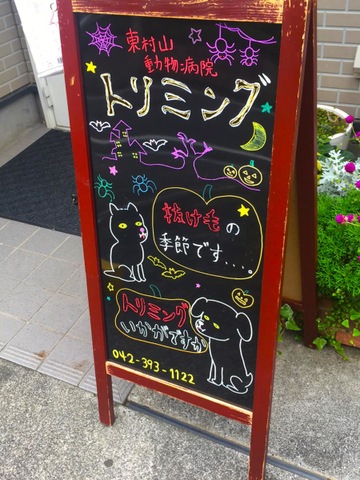 東村山
動物病院
トリミング
抜け毛の
季節です...。
トリミング
いかがですか
042-393-1122